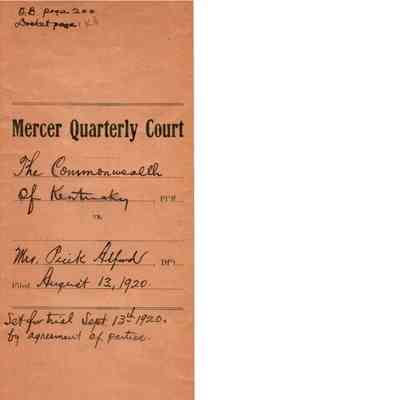 O.B. page 200
Docket page
Mercer Quarterly Court
The Commonwealth
of Kentucky, PFF.
vs.
Mrs. Pick Alford, DFT.
Filed August 13, 1920.
Set for trial Sept 13th 1920.
by agreement of parties.